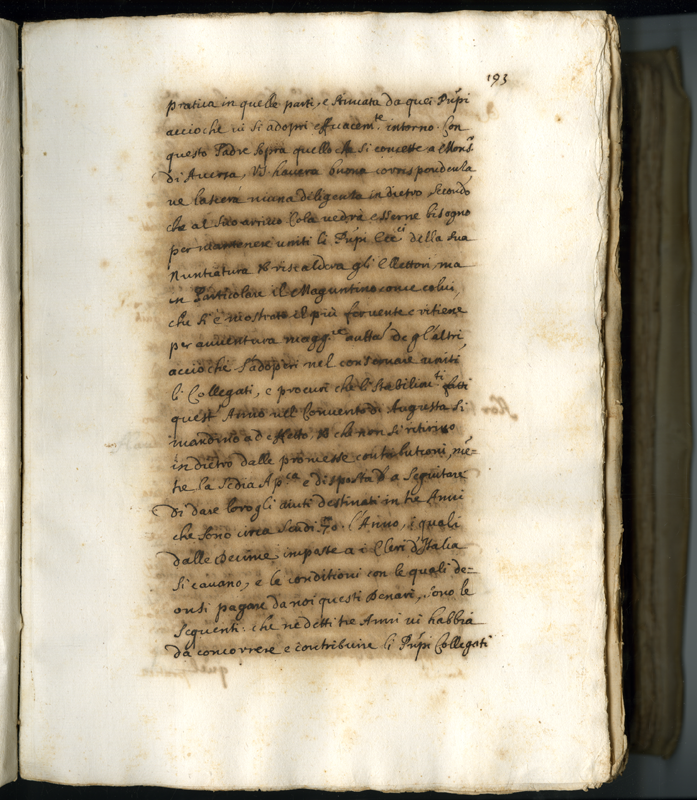 193
pratica in quelle parti, e stimata da quei Pñpi
accioche vi si adopri efficacem.te intorno. Con
questo Padre sopra quello che si concette a Mons.r
di Aversa, VS. havera buona corrispondenza
ne lasciera niuna diligenza indietro, secondo
che al suo arrivo Cola vedrà esserne bisogno
per mantenere uniti li Pñpi Ecc.ci della sua
Nuntiatura VS riscalderà gli Elettori, ma
in Particolare il Maguntino come colui,
che si è mostrato il più fervente e ritiene
per avventura magg.re autta' de gl'altri
accioche s'adoperi nel conservare uniti
li Collegati, e procuri che li stabilim.ti fatti
quest' Anno nel Convento di Augusta si
mandino ad effetto, et che non si ritirino
indietro dalle promesse contributioni, mē=
tre la Sedia Ap.ca e disposta a Seguitare
di dare loro gli aiuti destinati in tre Anni
che sono circa Scudi l'Anno, i quali
dalle Decime imposte a i Cleri d'Italia
si cavano, e le conditioni con le quali de=
onsi pagare da noi questi Denari, sono le
seguenti. che ne detti tre Anni vi habbia
da concorrere e contribuire li Pñpi Collegati